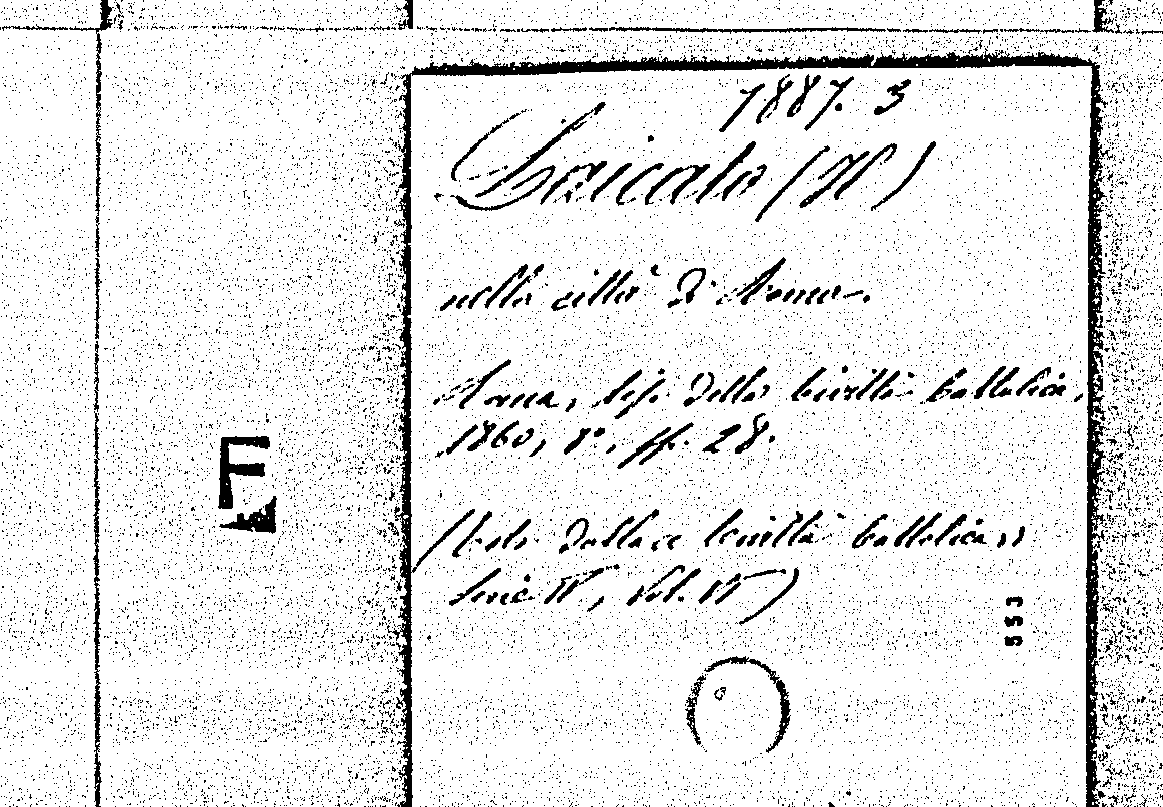 1887. 3
Laicato (Il)
nella città di Roma.
Roma, tip. della Civiltà Cattolica,
1860, 8°, pp. 28.
F
(Estr. dalla « Civiltà Cattolica »
Serie IV, Vol. VI)
553